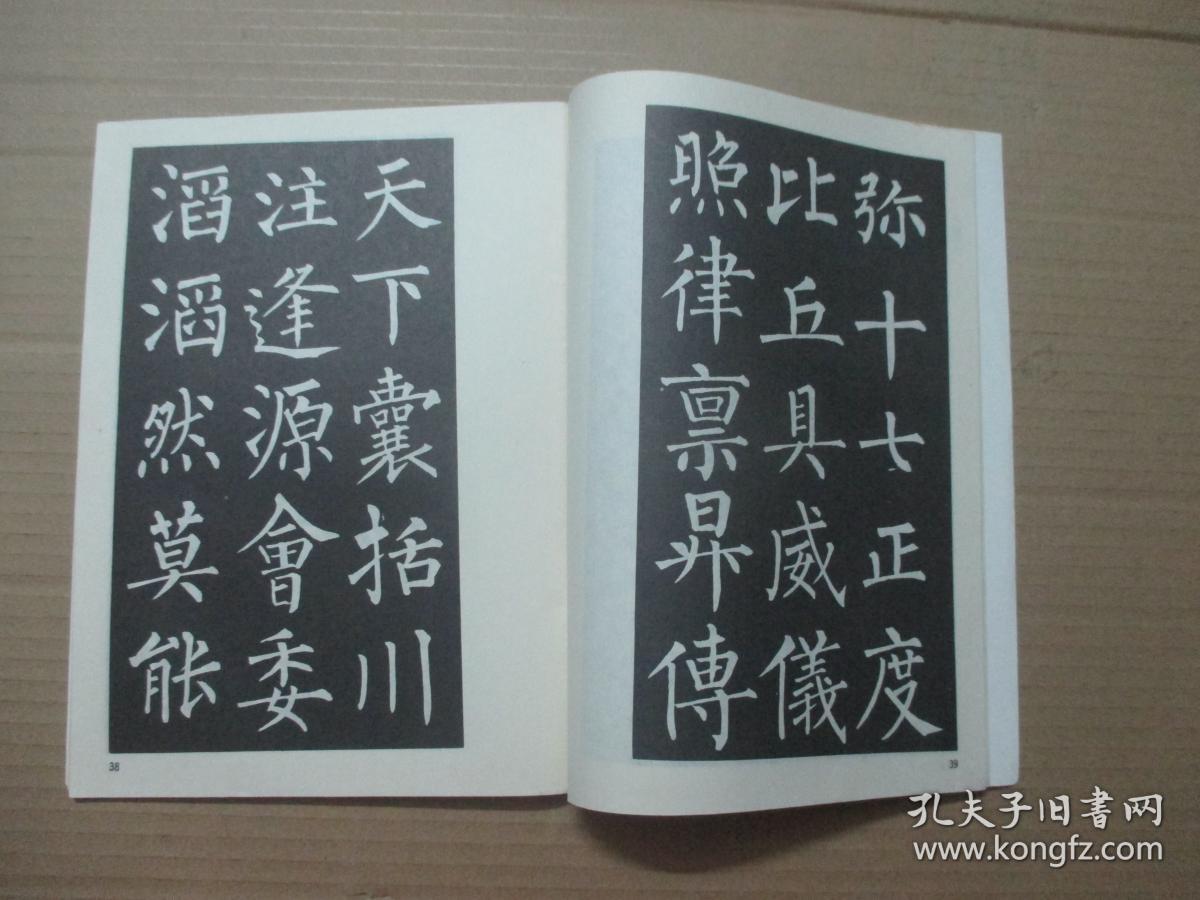 天下囊括川
注逢源會委
滔滔然莫能
38
弥十七正度
比丘具威儀
照律禀昇傳
39
孔夫子旧書网
www.kongfz.com